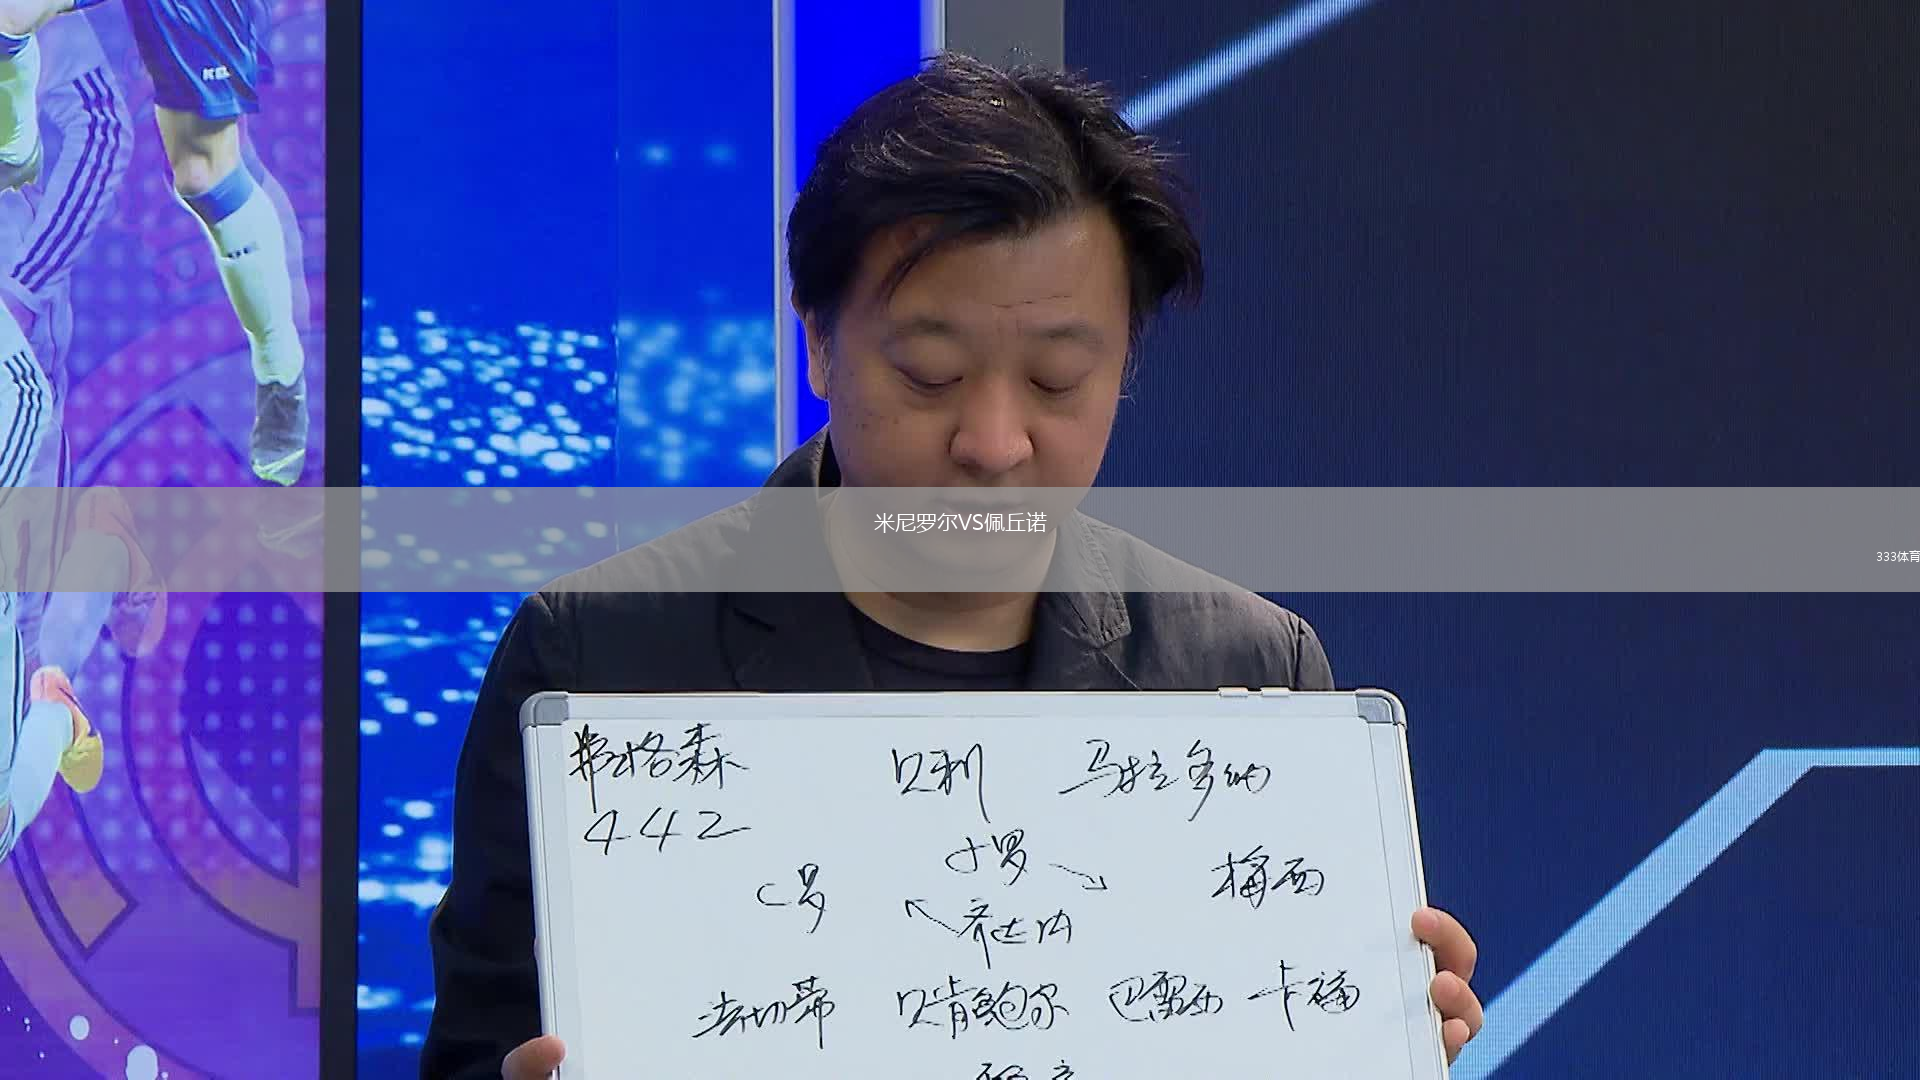 米尼罗尔VS佩丘诺
333体育
弗格森 贝利 马拉多纳
442
小罗
C罗 梅西
齐达内
法切蒂 贝肯鲍尔 巴雷西 卡福